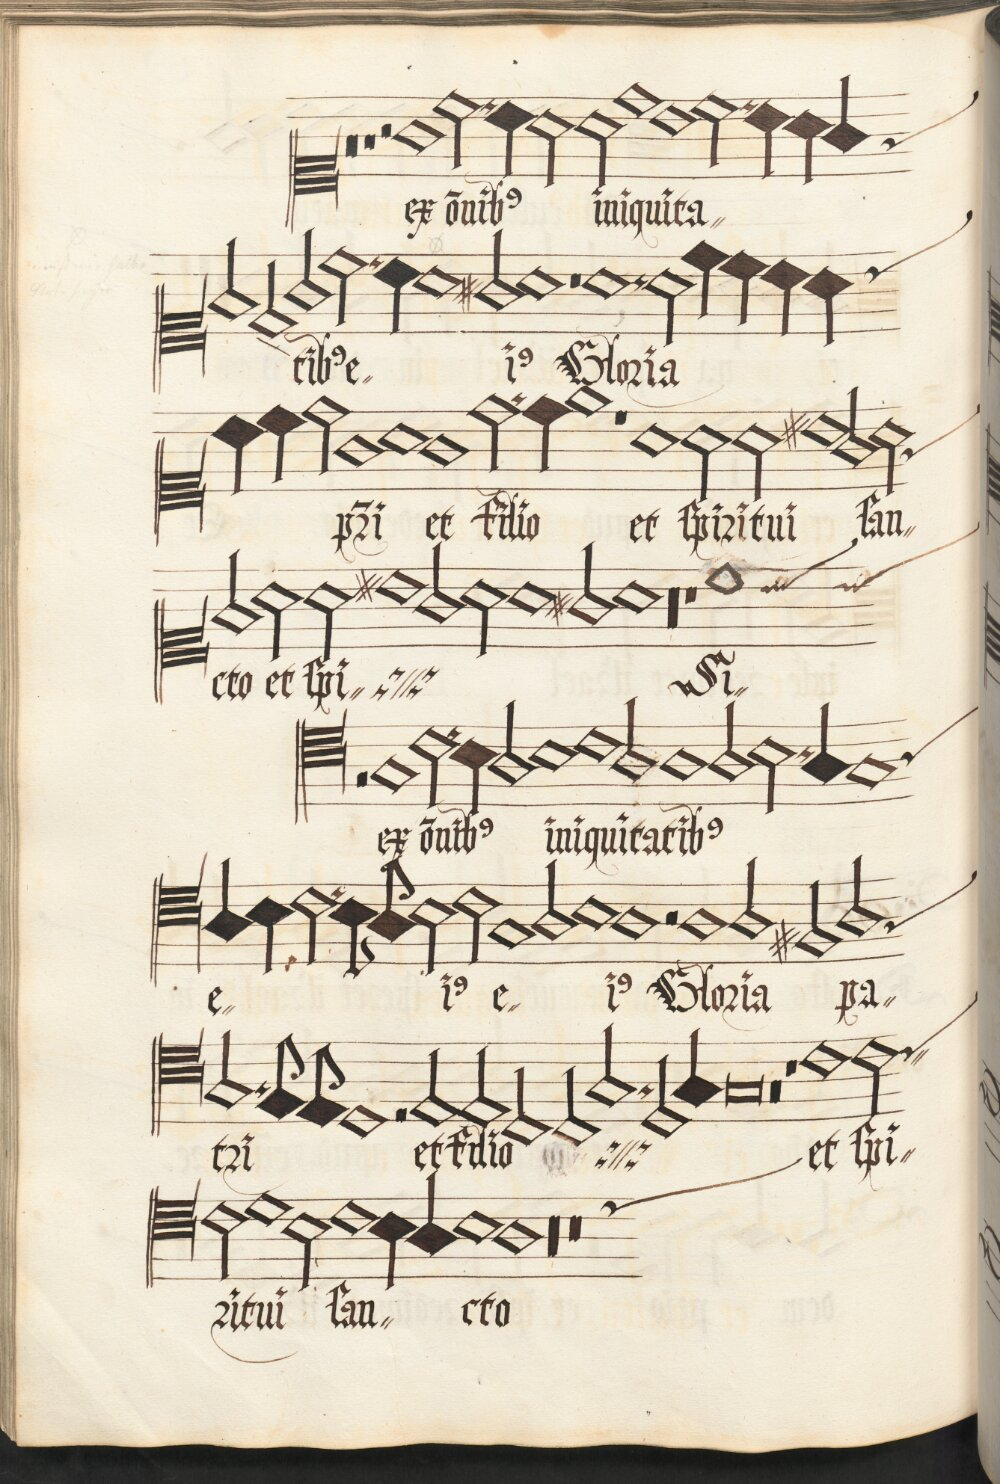 ex o̅nibꝰ iniquita„
tibꝰ e„ iꝰ Gloria
pr̅i et filio et spiritui san„
cto et spi„ Si„
ex o̅nibꝰ iniquitatibꝰ
e„ iꝰ e„ iꝰ Gloria pa„
tri et filio et spi„
ritui san„ cto